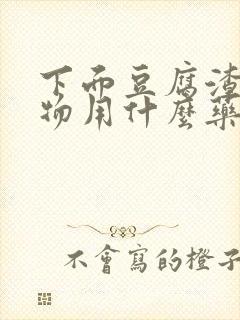 下面豆腐渣
物用什麼藥
不會寫的橙子